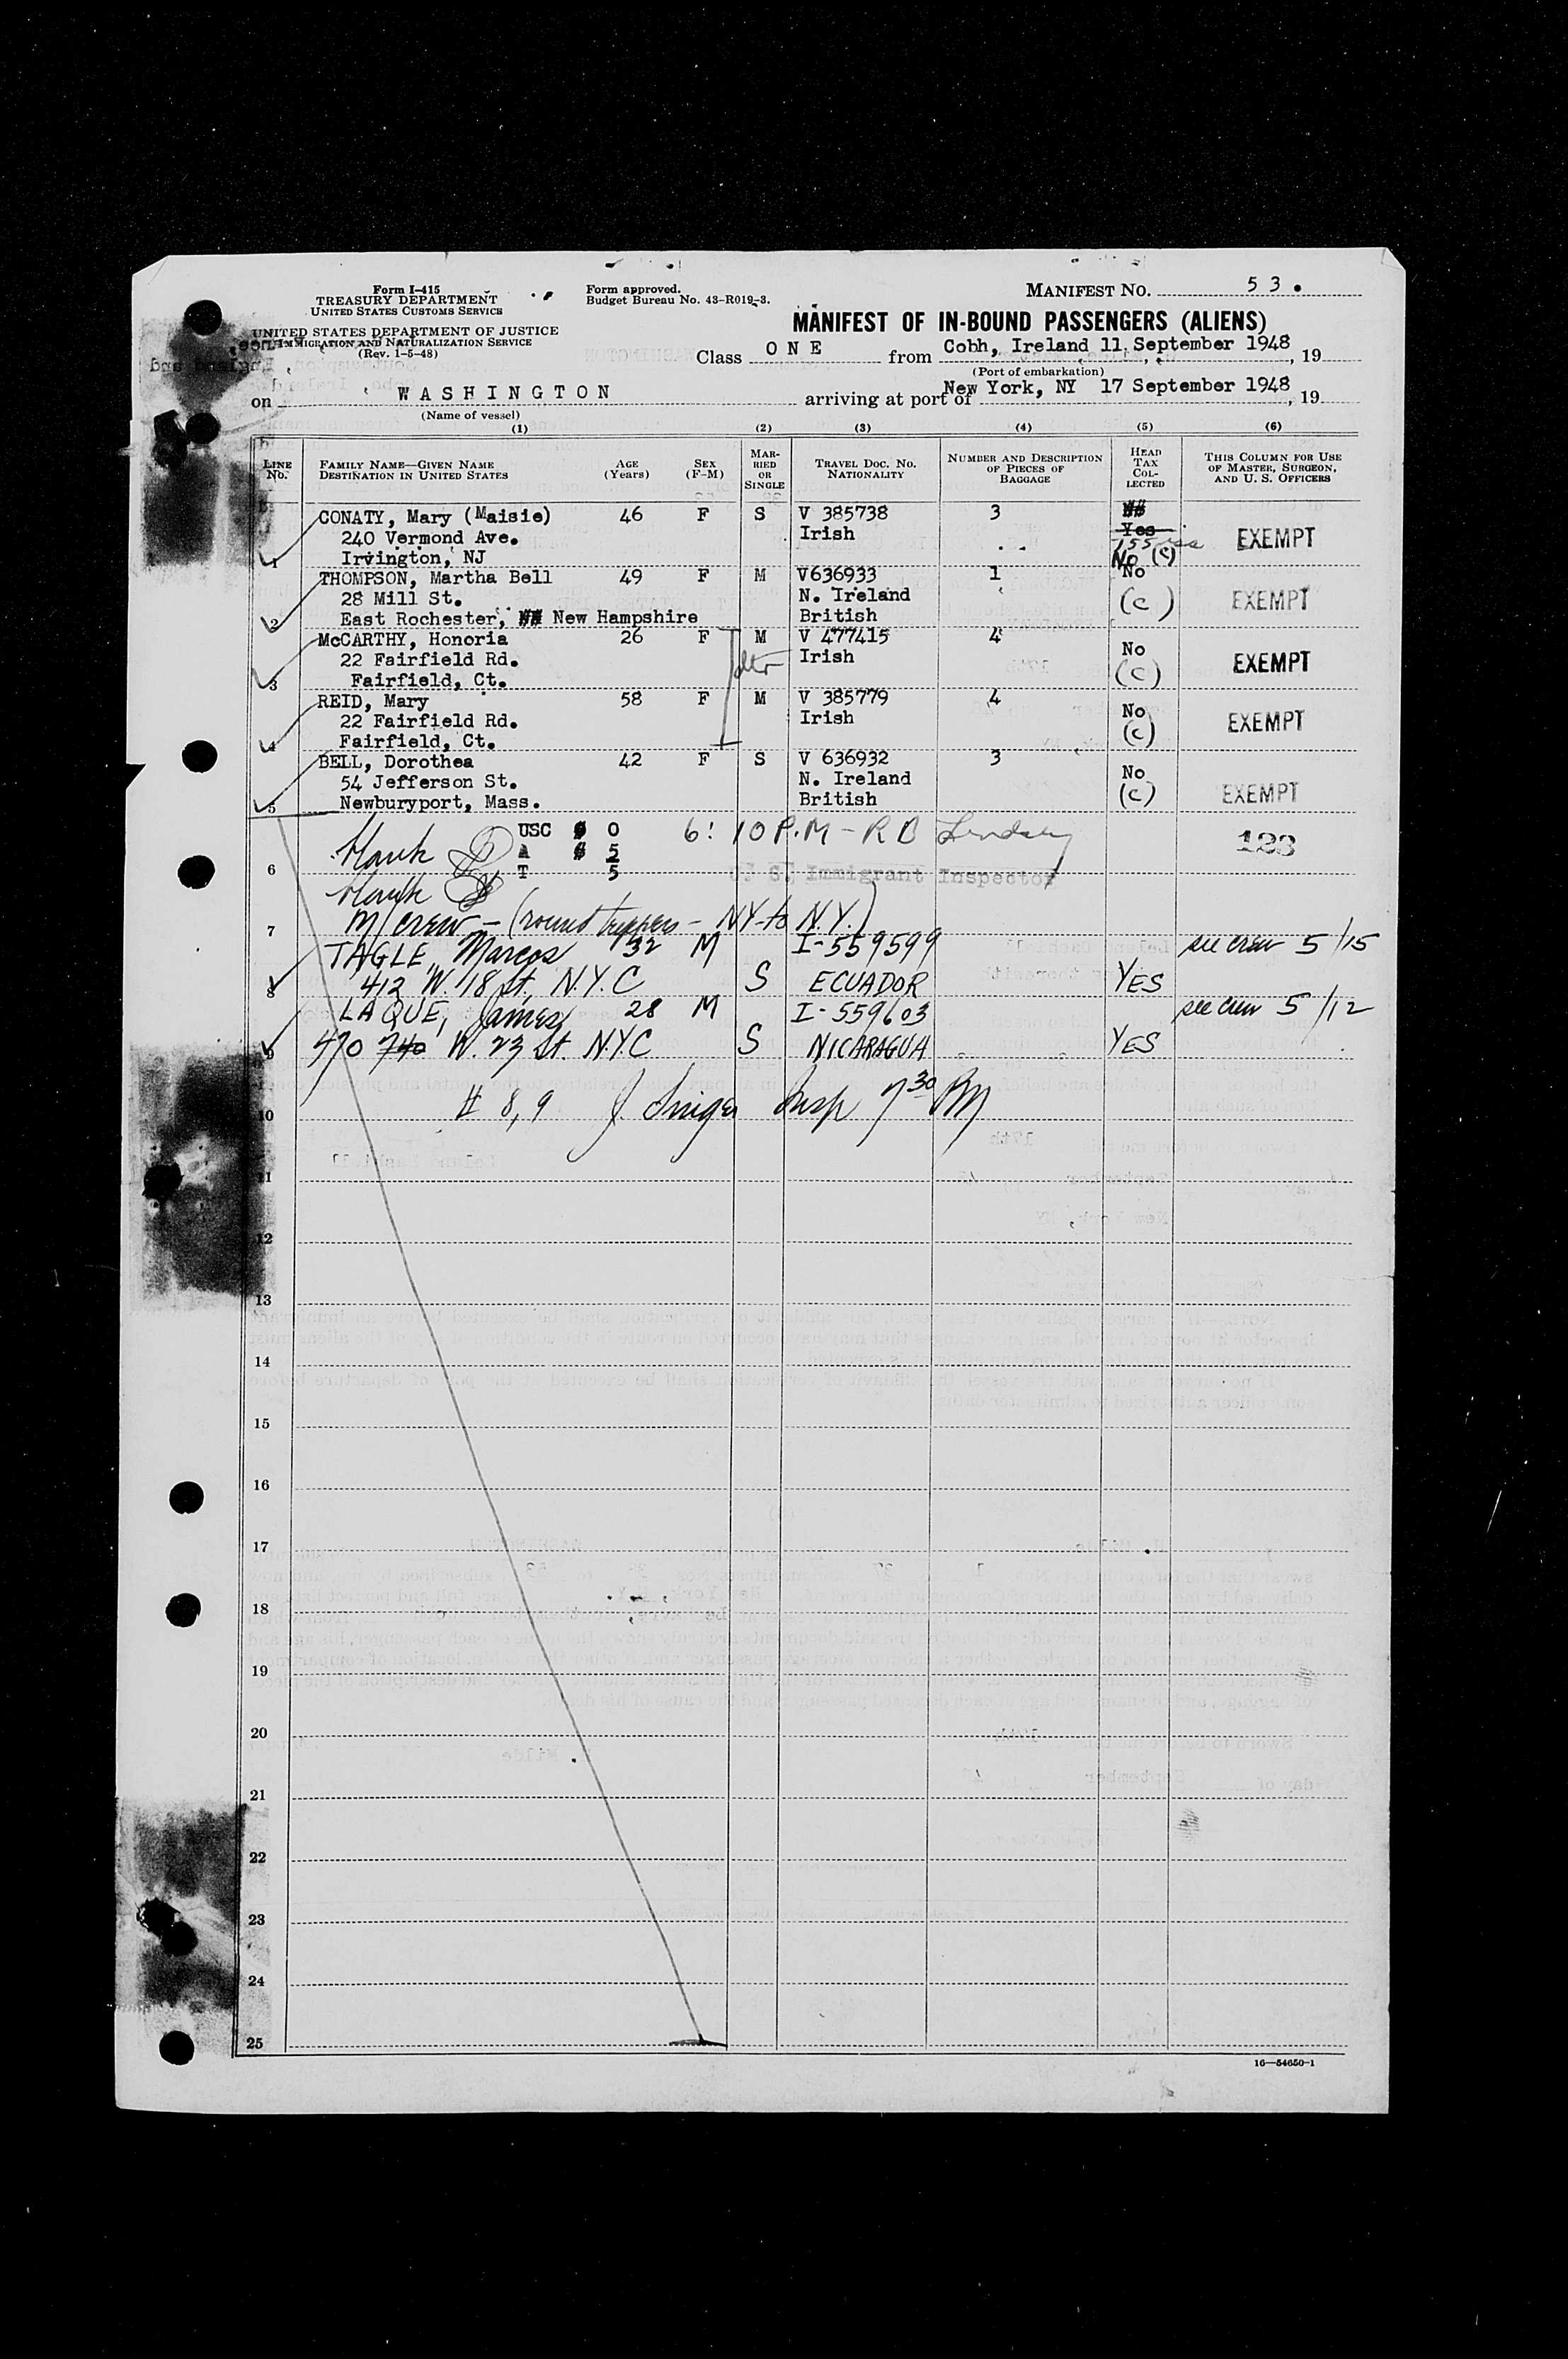 Form I-415
TREASURY DEPARTMENT
UNITED STATES CUSTOMS SERVICE
UNITED STATES DEPARTMENT OF JUSTICE
IMMIGRATION AND NATURALIZATION SERVICE
(Rev. 1-5-48)
Form approved.
Budget Bureau No. 43-R019-3.
MANIFEST NO. 53.
MANIFEST OF IN-BOUND PASSENGERS (ALIENS)
Class ONE from Cobh, Ireland 11 September 1948, 19
(Port of embarkation)
on WASHINGTON arriving at port of New York, NY 17 September 1948, 19
(Name of vessel)
(1) (2) (3) (4) (5) (6)
LINE NO. FAMILY NAME—GIVEN NAME DESTINATION IN UNITED STATES AGE (Years) SEX (F-M) MARRIED OR SINGLE TRAVEL DOC. NO. NATIONALITY NUMBER AND DESCRIPTION OF PIECES OF BAGGAGE HEAD TAX COLLECTED THIS COLUMN FOR USE OF MASTER, SURGEON, AND U. S. OFFICERS
CONATY, Mary (Maisie) 46 F S V 385738 3
240 Vermond Ave. Irish Yes EXEMPT
1 Irvington, NJ No (c)
THOMPSON, Martha Bell 49 F M V636933 1 No
28 Mill St. N. Ireland (c) EXEMPT
2 East Rochester, New Hampshire British
McCARTHY, Honoria 26 F M V 477415 4 No
22 Fairfield Rd. Irish (c) EXEMPT
3 Fairfield, Ct.
REID, Mary 58 F M V 385779 4 No
22 Fairfield Rd. Irish (c) EXEMPT
4 Fairfield, Ct.
BELL, Dorothea 42 F S V 636932 3 No
54 Jefferson St. N. Ireland (c) EXEMPT
5 Newburyport, Mass. British
USC 0 6:10 P.M - R B Lindsay 123
A 5
6 T 5 U. S. Immigrant Inspector
7 M/crew - (round trippers - NY to N.Y.)
TAGLE, Marcos 32 M I-559599 see crew 5/15
8 412 W. 18 St. N.Y.C S ECUADOR YES
LAQUE, James 28 M I-559603 see crew 5/12
9 470 740 W. 23 St. N.Y.C S NICARAGUA YES
10 # 8, 9 Insp 7 30 PM
11
12
13
14
15
16
17
18
19
20
21
22
23
24
25
16—54650-1